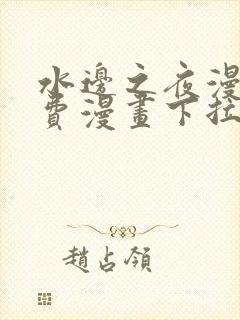 水邊之夜漫
費漫畫下拉
趙占領